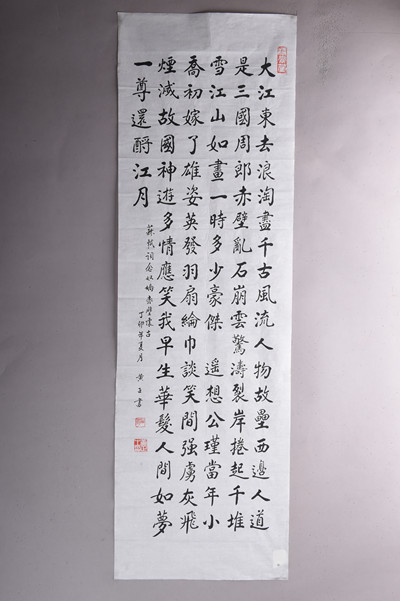 大江東去浪淘盡千古風流人物故壘西邊人道
是三國周郎赤壁亂石崩雲驚濤裂岸捲起千堆
雪江山如畫一時多少豪傑 遥想公瑾當年小
喬初嫁了雄姿英發羽扇綸巾談笑間强虜灰飛
煙滅故國神遊多情應笑我早生華髮人間如夢
一尊還酹江月
蘇軾詞念奴嬌赤壁懷古
丁卯年夏月 黄 書